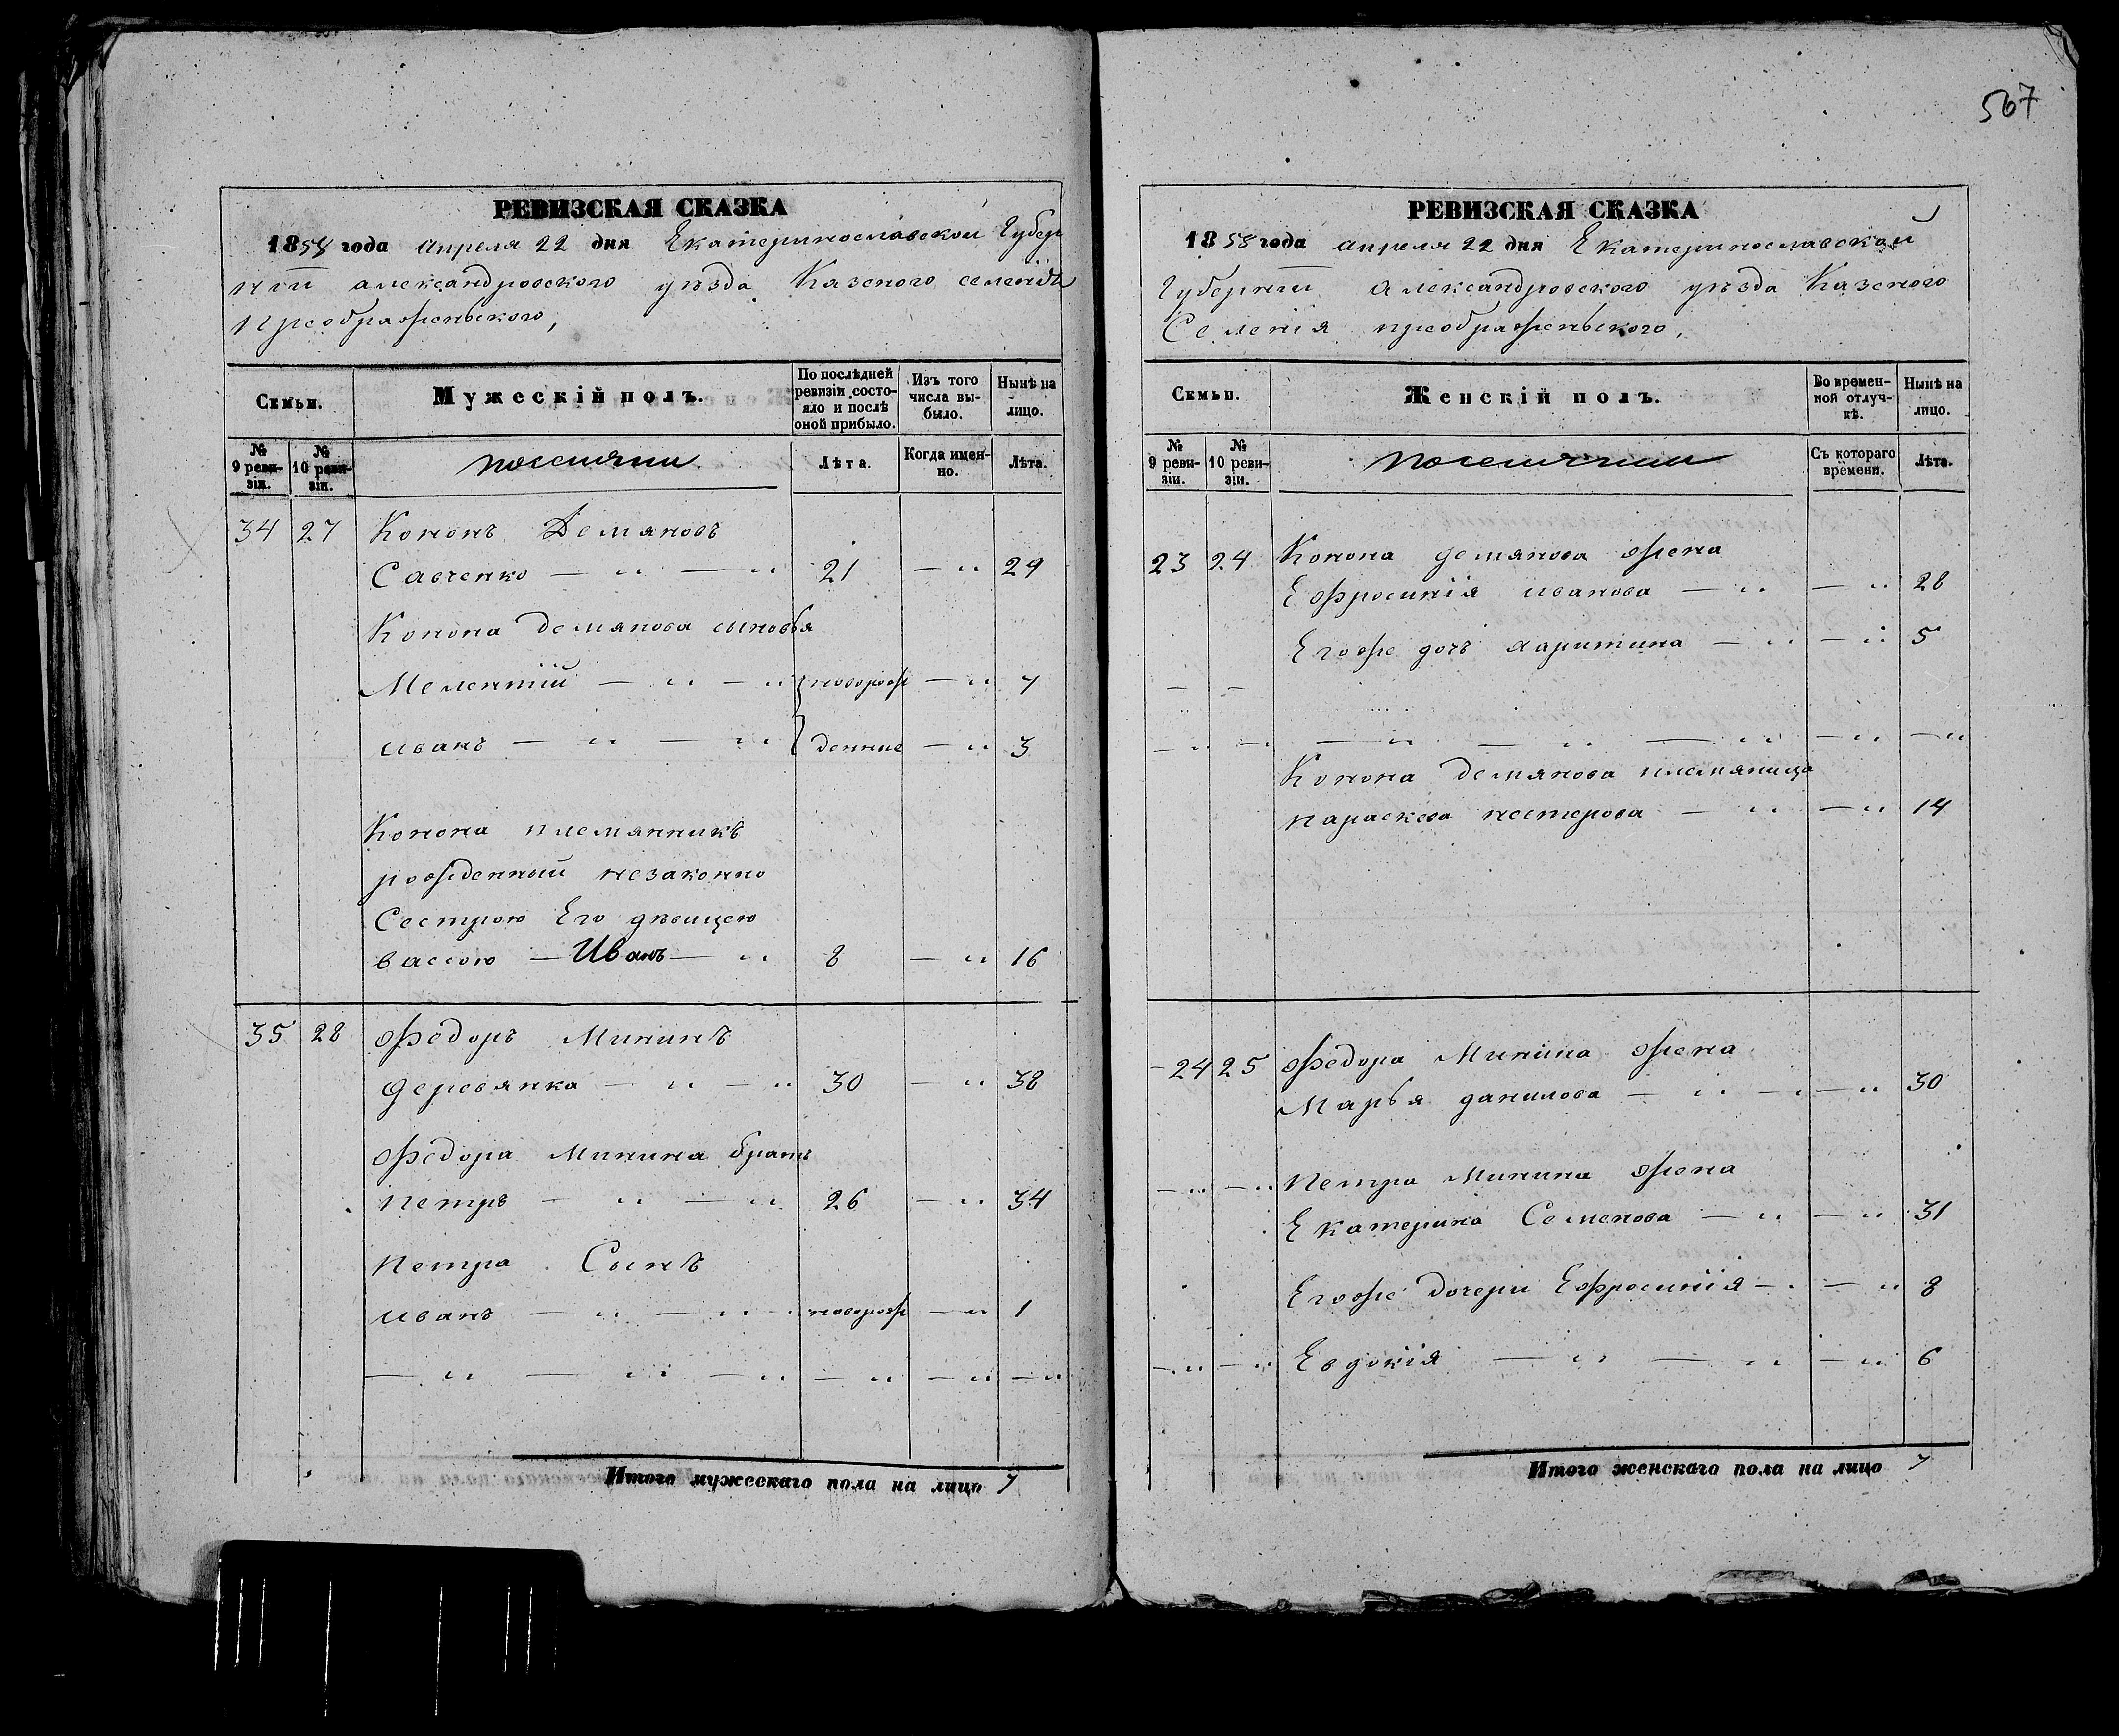 567
РЕВИЗСКАЯ СКАЗКА
1858 года Апреля 22 дня Екатеринославской Губер
нiи александровского уѣзда Казеного селенiя
Преображеньского,
Семьи.
Мужескiй полъ.
По послѣдней ревизiи состо-яло и послѣ оной прибыло.
Изъ того числа вы-было.
Нынѣ на лицо.
№ 9 реви-зiи.
№ 10 реви-зiи.
поселяни
Лѣта.
Когда имен-но.
Лѣта.
34 27 Кононъ Демяновъ
Савченко — „ — „ 21 — „ 29
Конона демянова сыновья
Мелентiй — „ — „ новорож — „ 7
иванъ — „ — „ денние — „ 3
Конона племянникъ
рожденный незаконно
Сестрою Его дѣвицею
вассою — Иванъ — „ 8 — „ 16
35 28 Федоръ Мининъ
деревянка — „ — „ 30 — „ 38
Федора минина братъ
петръ — „ — „ 26 — „ 34
петра Сынъ
иванъ — „ — „ новорож — „ 1
— „ — „ — „ — „ — „ — „
Итого мужескаго пола на лицо 7
РЕВИЗСКАЯ СКАЗКА
1858 года апреля 22 дня Екатеринославской
Губернiи Александровского уѣзда Казеного
Селенiя преображеньского,
Семьи.
Женскiй полъ.
Во времен-ной отлуч-кѣ.
Нынѣ на лицо.
№ 9 реви-зiи.
№ 10 реви-зiи.
поселянки
Съ котораго времени.
Лѣта.
23 24 Конона демянова жена
Ефросинiя иванова — „ — „ 28
Егоже дочь харитина — „ — „ 5
— —
— „ — „ — „ — „ — „ — „ — „
Конона демянова племяница
параскева нестерова — „ — „ 14
— 24 25 Федора Минина жена
Марья данилова — „ — „ 30
— „ — „ петра минина жена
Екатерина Семенова — „ — „ 31
Егоже дочери Ефросинiя — „ — „ 8
— „ — „ Евдокiя — „ — „ — „ 6
Итого женскаго пола на лицо 7